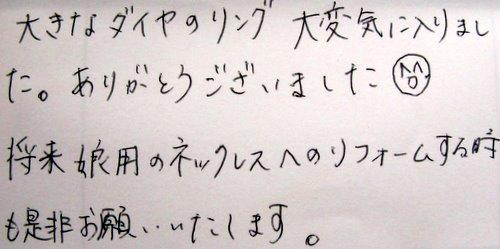 大きなダイヤのリング 大変気に入りまし
た。ありがとうございました
将来娘用のネックレスへのリフォームする時
も是非お願いいたします。